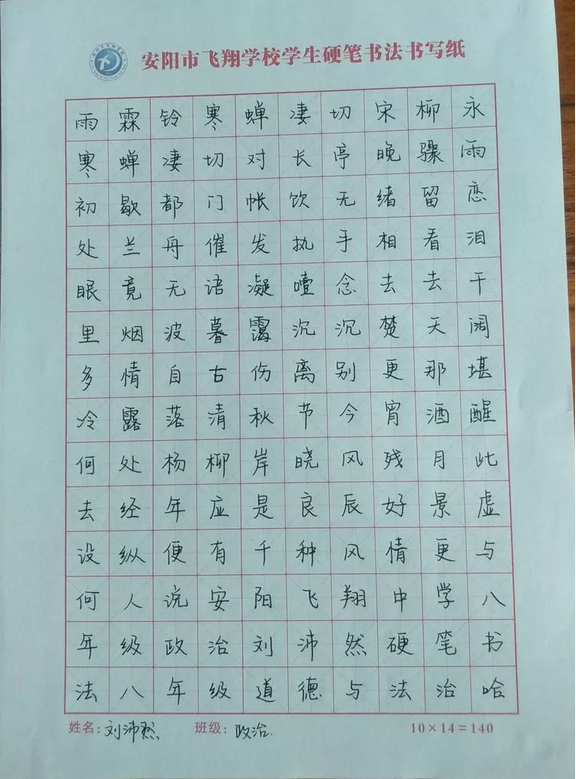 安阳市飞翔学校学生硬笔书法书写纸
雨霖铃寒蝉凄切宋柳永
寒蝉凄切对长亭晚骤雨
初歇都门帐饮无绪留恋
处兰舟催发执手相看泪
眼竟无语凝噎念去去千
里烟波暮霭沉沉楚天阔
多情自古伤离别更那堪
冷露落清秋节今宵酒醒
何处杨柳岸晓风残月此
去经年应是良辰好景虚
设纵便有千种风情更与
何人说安阳飞翔中学八
年级政治刘沛然硬笔书
法八年级道德与法治哈
姓名:刘沛然 班级:政治. 10×14=140